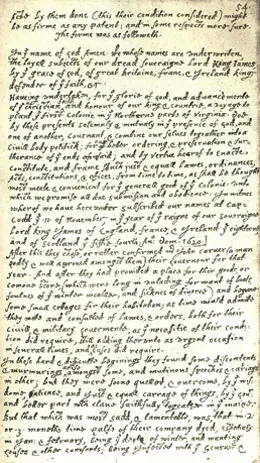 54
Acte by them done (this their condition considered) might
be as firme as any patent; and in some respects more sure.
The forme was as followeth.
In y^e name of god Amen. We whose names are underwriten,
the loyall subjects of our dread soveraigne Lord King James
by y^e grace of god, of great Britaine, franc, & Ireland king,
defender of y^e faith, &c.
Haveing undertaken, for y^e glorie of god, and advancemente
of y^e christian faith and honour of our king & countrie, a voyage to
plant y^e first colonie in y^e Northerne parts of Virginia. Doe
by these presents solemnly & mutualy in y^e presence of god, and
one of another, covenant, & combine our selves togeather into a
civill body politick; for y^e better ordering, & preservation & fur-
therance of y^e ends aforesaid; and by vertue hearof to enacte,
constitute, and frame such just & equall Lawes, ordinances,
Acts, constitutions, & offices, from time to time, as shall be thought
most meete & convenient for y^e generall good of y^e colonie: unto
which we promise all due submission and obedience. In witnes
wherof we have hereunder subscribed our names at cap-
Codd y^e .11. of November, in y^e year of y^e raigne of our soveraigne
Lord king James of England, france, & Ireland y^e eighteenth
and of Scotland y^e fiftie fourth. An^o: Dom. 1620.
After this they chose, or rather confirmed m^r John Carver (a man
godly & well approved amongst them) their Governour for that
year. And after they had provided a place for their goods, or
comone store, (which were long in unlading for want of boats,
foulnes of y^e winter weather, and sicknes of diverce) and begune
some small cottages for their habitation; as time would admitte
they mette and consulted of lawes, & orders, both for their
civill & military Govermente, as y^e necessitie of their condi-
tion did require, still adding therunto as urgent occasion
in severall times, and as cases did require.
In these hard & difficulte begininges they found some discontents
& murmurings arise amongst some, and mutinous speeches & carriags
in other; but they were soone quelled & overcome, by y^e wis-
dome, patience, and just & equall carrage of things, by y^e Gov^r
and better part w^ch clave faithfully togeather in y^e maine.
But that which was most sadd, & lamentable, was, that in 2.
or 3. moneths time halfe of their company dyed, espetialy
in Jan: & february, being y^e depth of winter, and wanting
houses & other comforts; being Infected with y^e scurvie &